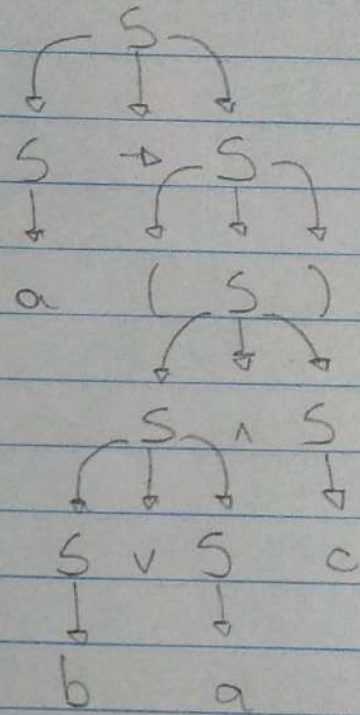 S
S → S
a ( S )
S ∧ S
S ∨ S c
b a